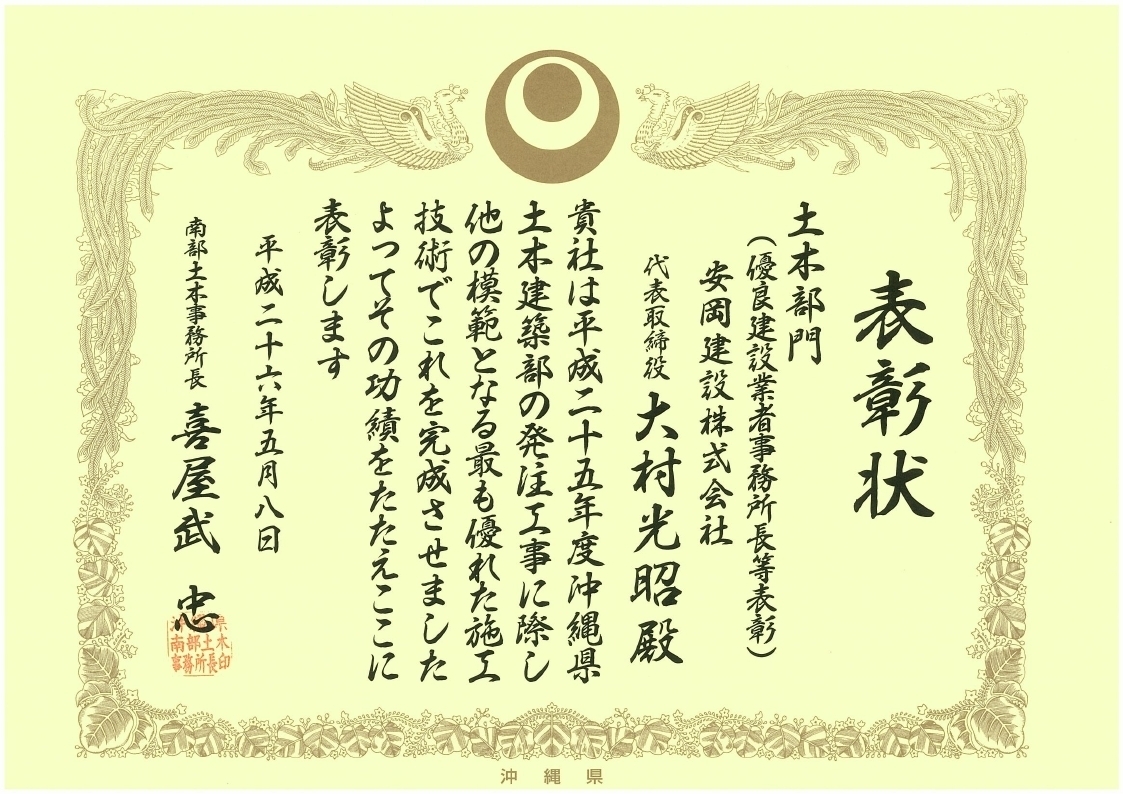 表彰状
土木部門
（優良建設業者事務所長等表彰）
安岡建設株式会社
代表取締役 大村光昭殿
貴社は平成二十五年度沖縄県
土木建築部の発注工事に際し
他の模範となる最も優れた施工
技術でこれを完成させました
よってその功績をたたえここに
表彰します
平成二十六年五月八日
南部土木事務所長 喜屋武 忠
沖縄県
南部土木
事務所長印
沖縄県